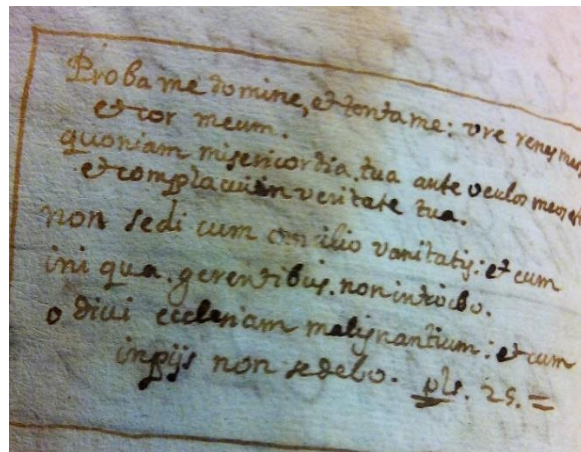 Proba me domine, et tenta me: vre renes meos
et cor meum.
quoniam misericordia tua ante oculos meos est
et complacui in veritate tua.
non sedi cum consilio vanitatis: et cum
ini qua. gerentibus. non introibo.
odivi ecclesiam malignantium: et cum
inpijs non sedebo. pls. 25. =